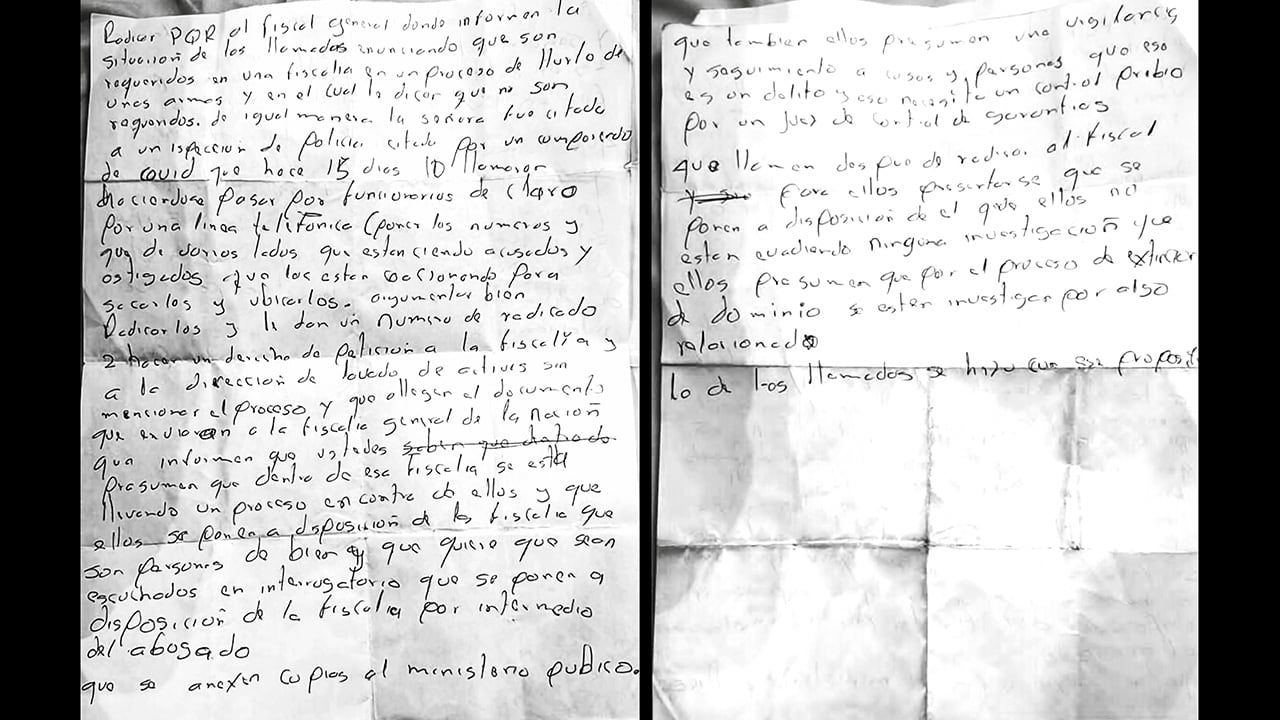 Radicar PQR al fiscal general donde informen la
situación de las llamadas enunciando que son
requeridos en una fiscalia en un proceso de Hurto de
unas armas y en el cual le dicen que no son
requeridos. de igual manera la señora fue citada
a un ispección de policia citada por un comparendo
de covid que hace 15 dias 10 llamaron
haciendose pasar por funcionarios de claro
por una linea telefonica (poner los numeros y
que de darios todos que estan ciendo acusados y
ostigados que los estan cacionando para
sacarlos y ubicarlos. argumentar bien
Radicarlos y le dan un numero de radicado
2 hacer un derecho de peticion a la fiscalía y
a la dirección de lavado de activos sin
mencionar el proceso y que allegan el documento
que enviaron a la fiscalia general de la nación
que informen que ustedes
presumen que dentro de esa fiscalia se está
llevando un proceso en contra de ellos y que
ellos se ponen a disposición de la fiscalia que
son personas de bien y que quiere que sean
escuchados en interrogatorio que se ponen a
disposición de la fiscalia por intermedio
del abogado
que se anexen copias al ministerio publico.
que tambien ellos presumen una vigilancia
y seguimiento a cosas y personas que eso
es un delito y eso necesita un control prebio
por un juez de control de garantias
que llaman despues de radicar al fiscal
para ellos presentarse que se
ponen a disposición de el que ellos no
estan evadiendo ninguna investigación y que
ellos presumen que por el proceso de extincion
de dominio se esten investigan por algo
relacionado
lo de las llamadas se hizo con ese proposito